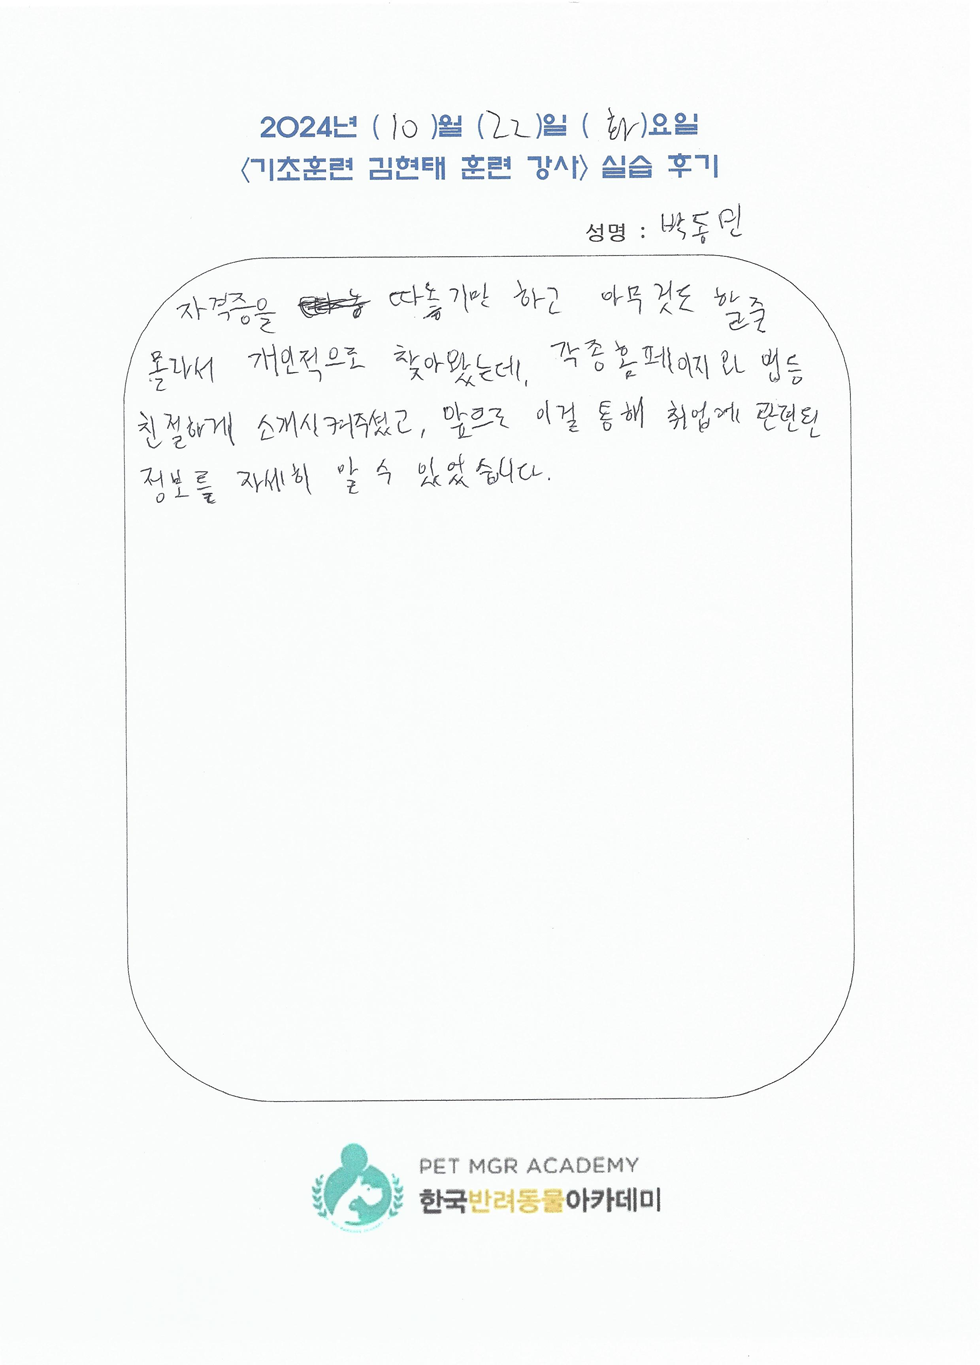 2024년 (10)월 (22)일 (화)요일
<기초훈련 김현태 훈련 강사> 실습 후기
성명 : 박동민
자격증을 따놓기만 하고 아무것도 할줄
몰라서 개인적으로 찾아왔는데, 각종홈페이지와 법등
친절하게 소개시켜주셨고, 앞으로 이걸 통해 취업에 관련된
정보를 자세히 알 수 있었습니다.
PET MGR ACADEMY
한국반려동물아카데미